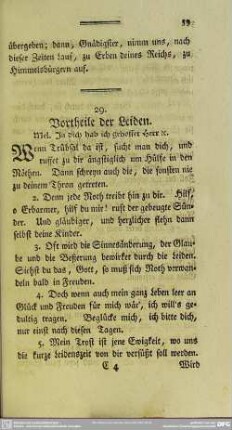 39
übergeben; dann, Gnädigster, nimm uns, nach
dieser Zeiten lauf, zu Erben deines Reichs, zu
Himmelsbürgern auf.
29.
Vortheile der Leiden.
Mel. In dich hab ich gehoffet Herr ꝛc.
Wenn Trübsal da ist, sucht man dich, und
ruffet zu dir ängstiglich um Hülfe in den
Nöthen. Dann schreyn auch die, die sonsten nie
zu deinem Thron getreten.
2. Denn jede Noth treibt hin zu dir. Hilf,
o Erbarmer, hilf du mir! ruft der gebeugte Sün-
der. Und gläubiger, und herzlicher flehn dann
selbst deine Kinder.
3. Oft wird die Sinnesänderung, der Glau-
be und die Besserung bewirket durch die Leiden.
Siehst du das, Gott, so muß sich Noth verwan-
deln bald in Freuden.
4. Doch wenn auch mein ganz Leben leer an
Glück und Freuden für mich wär, ich will's ge-
dultig tragen. Beglücke mich, ich bitte dich,
nur einst nach diesen Tagen.
5. Mein Trost ist jene Ewigkeit, wo uns
die kurze Leidenszeit von dir versüßt soll werden.
C 4 Wird